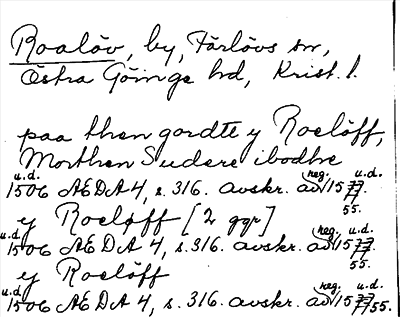 Roalöv, by, Färlövs sn,
Östra Göinge hd, Krist. l.
paa then gordtt y Roelöff,
Morthen Sudere ibodhe
u.d. 1506 ÆDA 4, s. 316. avskr. av reg. u.d. 1577. 55.
y Roeløff [2 ggr]
u.d. 1506 ÆDA 4, s. 316. avskr. av reg. u.d. 1577. 55.
y Roelöff
u.d. 1506 ÆDA 4, s. 316. avskr. av reg. u.d. 1577 55.